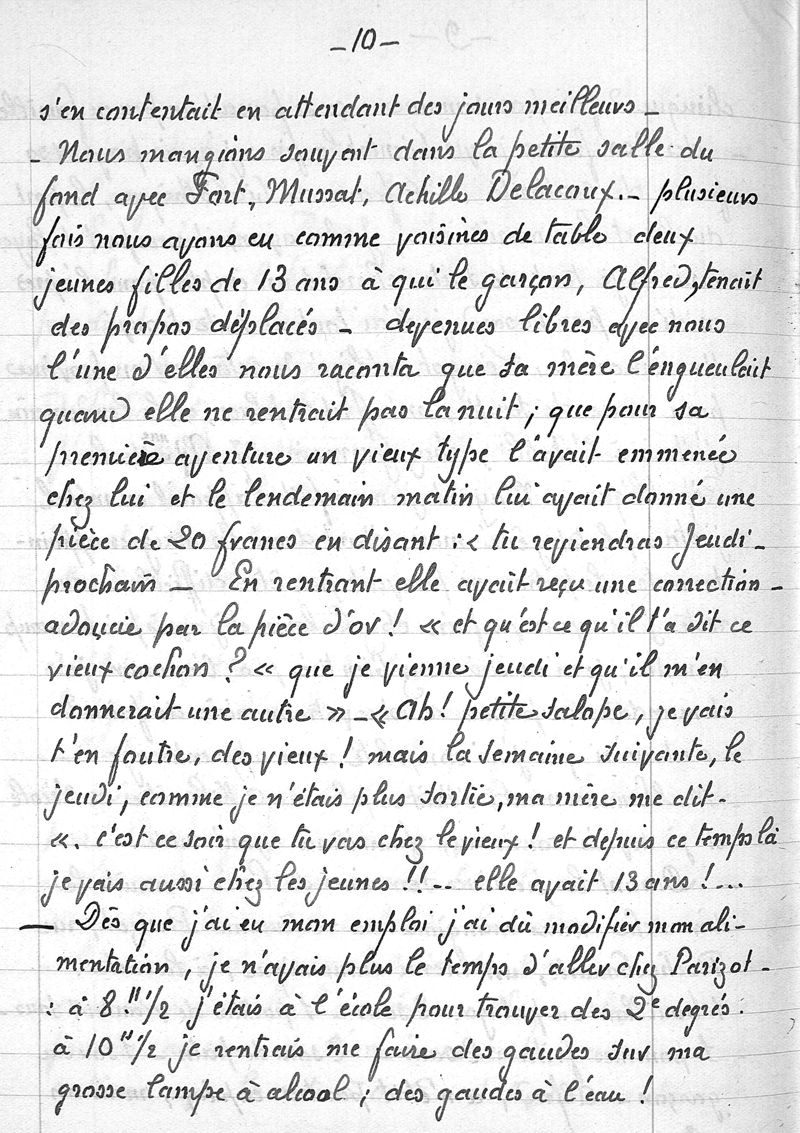 _10_
s'en contentait en attendant des jours meilleurs_
_ Nous mangions souvent dans la petite salle du
fond avec Fort, Mussat, Achille Delacoux._ plusieurs
fois nous avons eu comme voisines de table deux
jeunes filles de 13 ans à qui le garçon, Alfred, tenait
des propos déplacés _ devenues libres avec nous
l'une d'elles nous raconta que sa mère l'engueulait
quand elle ne rentrait pas la nuit ; que pour sa
première aventure un vieux type l'avait emmenée
chez lui et le lendemain matin lui avait donné une
pièce de 20 francs en disant : « tu reviendras Jeudi-
prochain _ En rentrant elle avait reçu une correction_
adoucie par la pièce d'or ! « et qu'est ce qu'il t'a dit ce
vieux cochon ? « que je vienne jeudi et qu'il m'en
donnerait une autre » _ « Ah ! petite salope, je vais
t'en foutre, des vieux ! mais la semaine suivante, le
jeudi, comme je n'étais plus sortie, ma mère me dit-
«. c'est ce soir que tu vas chez le vieux ! et depuis ce temps là
je vais aussi chez les jeunes !!.. elle avait 13 ans !...
_ Dès que j'ai eu mon emploi j'ai dû modifier mon ali-
mentation, je n'avais plus le temps d'aller chez Parizot_
: à 8 H 1/2 j'étais à l'école pour trouver des 2e degrés.
à 10 H 1/2 je rentrais me faire des gaudes sur ma
grosse lampe à alcool ; des gaudes à l'eau !